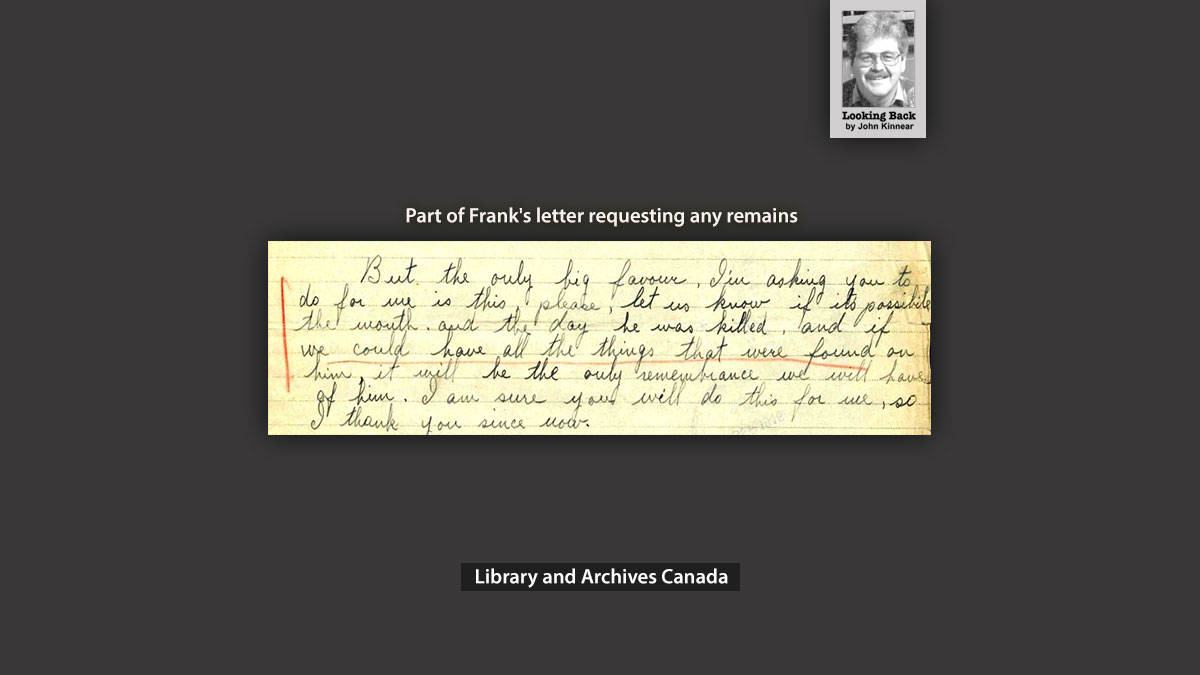 Looking Back
by John Kinnear
Part of Frank's letter requesting any remains
But the only big favour, I'm asking you to
do for me is this, please, let us know if its possibile
the month. and the day he was killed, and if
we could have all the things that were found on
him, it will be the only remembrance we will have
of him. I am sure you will do this for me, so
I thank you since now.
Library and Archives Canada